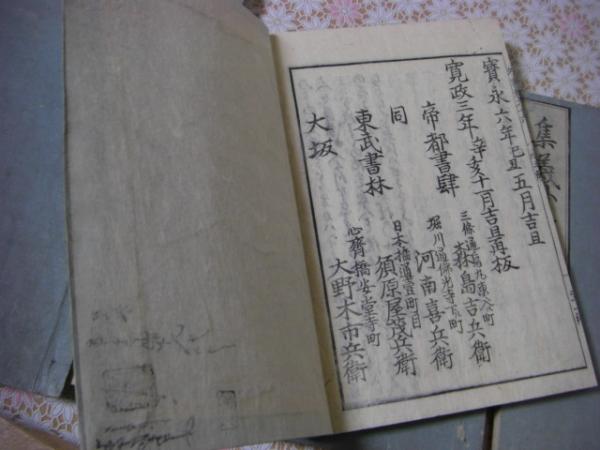 寳永六年己丑五月吉旦
寛政三年辛亥十一月吉旦再板
帝都書肆
三條通
東入町
森島吉兵衛
同
堀川通佛光寺下町
河南喜兵衛
東武書林
日本橋通壹町目
須原屋茂兵衛
大坂
心齋橋安堂寺町
大野木市兵衛
集義